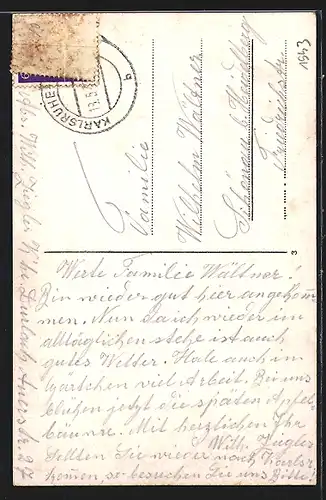 1943
KARLSRUHE
Familie
Wilhelm Wältner
Schönau b. Heidelberg
Friedrichstr.
3
Werte Familie Wältner!
Bin wieder gut hier angekom̅
men. Nun da ich wieder im
alltäglichen stehe ist auch
gutes Wetter. Habe auch im
Garten viel Arbeit. Bei uns
blühen jetzt die späten Apfel
bäume. Mit herzlichen
Wilh. Ziegler
Sollten Sie wieder nach Karlsr.
kom̅en, so besuchen Sie uns bitte!
Wilh. Ziegler K'he Durlach